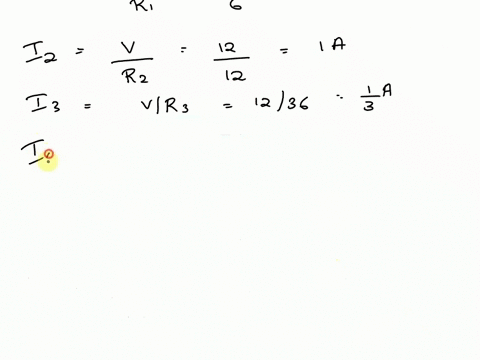 R1 6
I2 = V/R2 = 12/12 = 1 A
I3 = V/R3 = 12/36 = 1/3 A
I